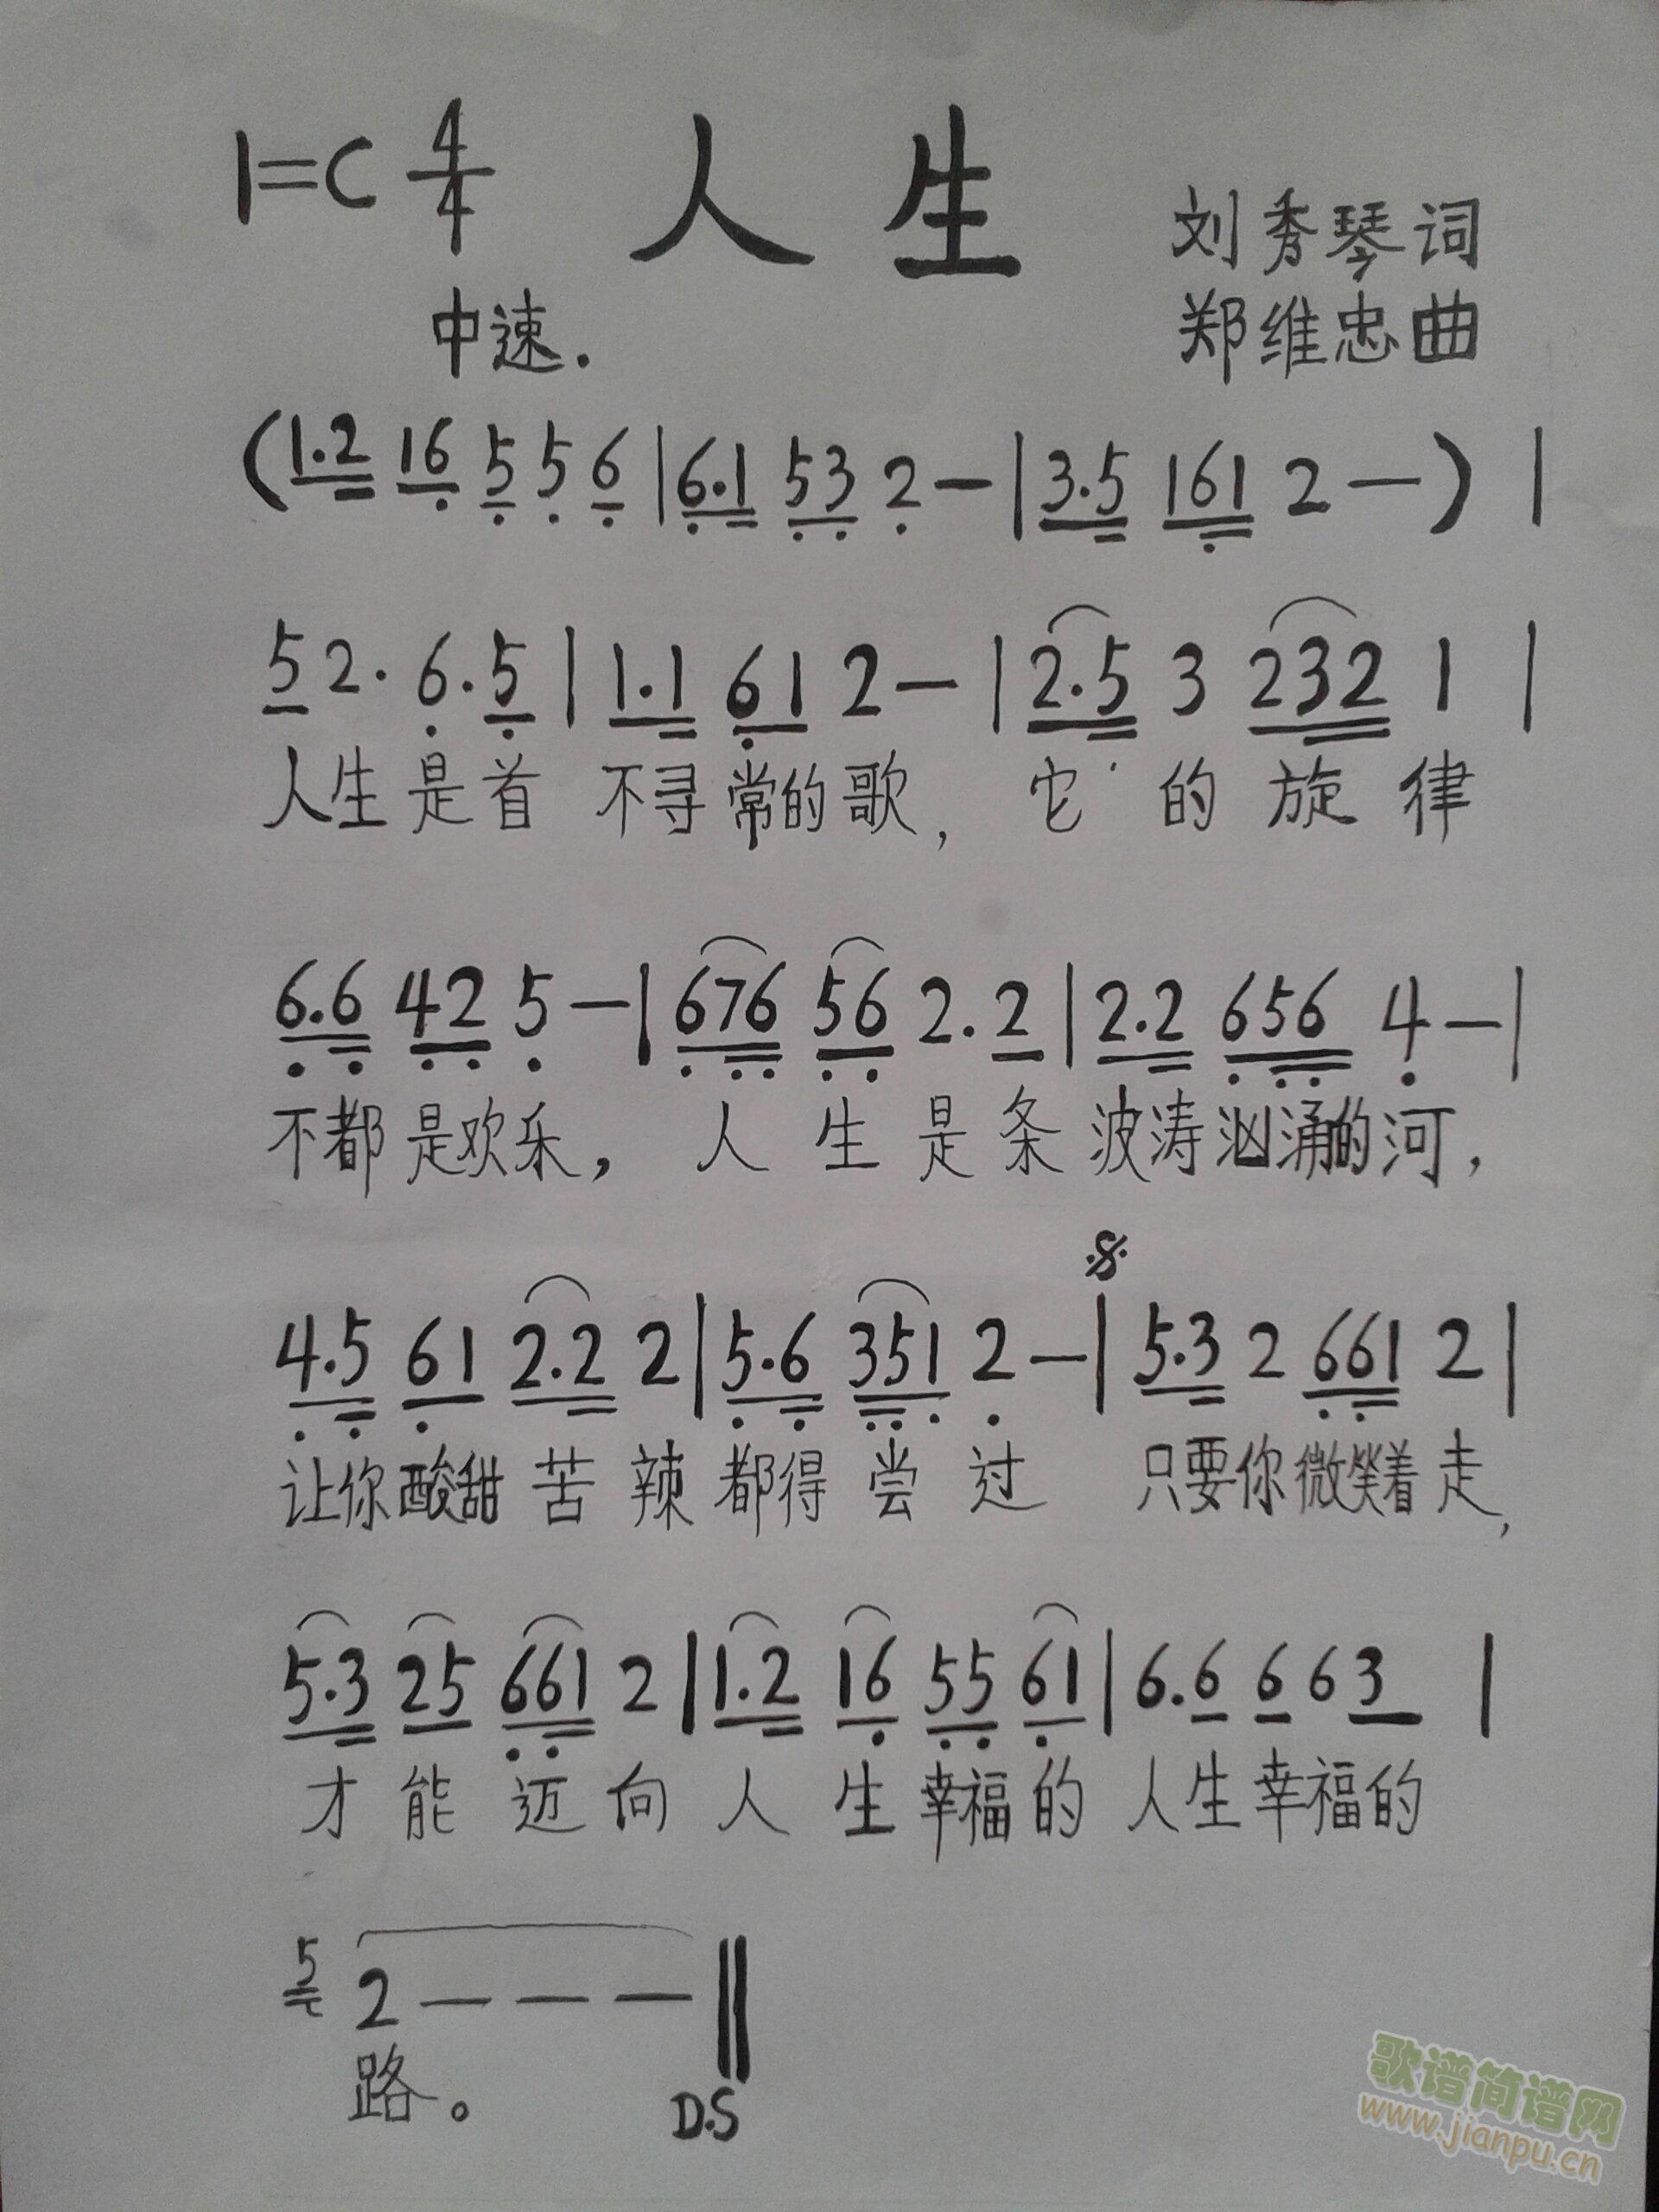 1=C 4/4 人生
刘秀琴词
中速.
郑维忠曲
(1.2 16 5 5 6|6.1 53 2—|3.5 161 2—)|
5 2. 6.5|1.1 61 2—|2.5 3 232 1|
人生是首 不寻常的歌, 它的旋律
6.6 42 5—|676 56 2.2|2.2 656 4—|
不都是欢乐, 人生是条 波涛汹涌的河,
4.5 61 2.2 2|5.6 351 2—|5.3 2 661 2|
让你酸甜苦辣 都得尝过 只要你微笑着走,
5.3 25 661 2|1.2 16 55 61|6.6 6 6 3|
才能迈向人生幸福的人生幸福的
5 2———‖
路。 D.S
歌谱简谱网
www.jianpu.cn